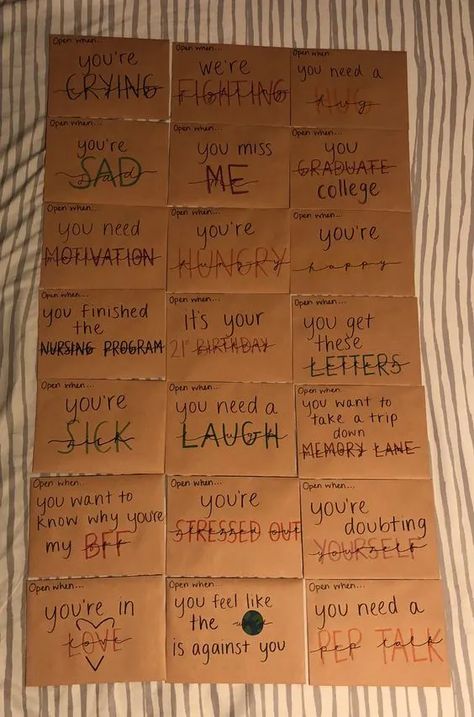 Open when...
you're
CRYING
Open when...
we're
FIGHTING
Open when...
you need a
HUG
Open when...
you're
SAD
Open when...
you miss
ME
Open when...
you
GRADUATE
college
Open when...
you need
MOTIVATION
Open when...
you're
HUNGRY
Open when...
you're
happy
Open when...
you finished
the
NURSING PROGRAM
Open when...
it's your
21st BIRTHDAY
Open when...
you get
these
LETTERS
Open when...
you're
SICK
Open when...
you need a
LAUGH
Open when...
you want to
take a trip
down
MEMORY LANE
Open when...
you want to
know why you're
my BFF
Open when...
you're
STRESSED OUT
Open when...
you're
doubting
YOURSELF
Open when...
you're in
LOVE
Open when...
you feel like
the
is against you
Open when...
you need a
PEP TALK